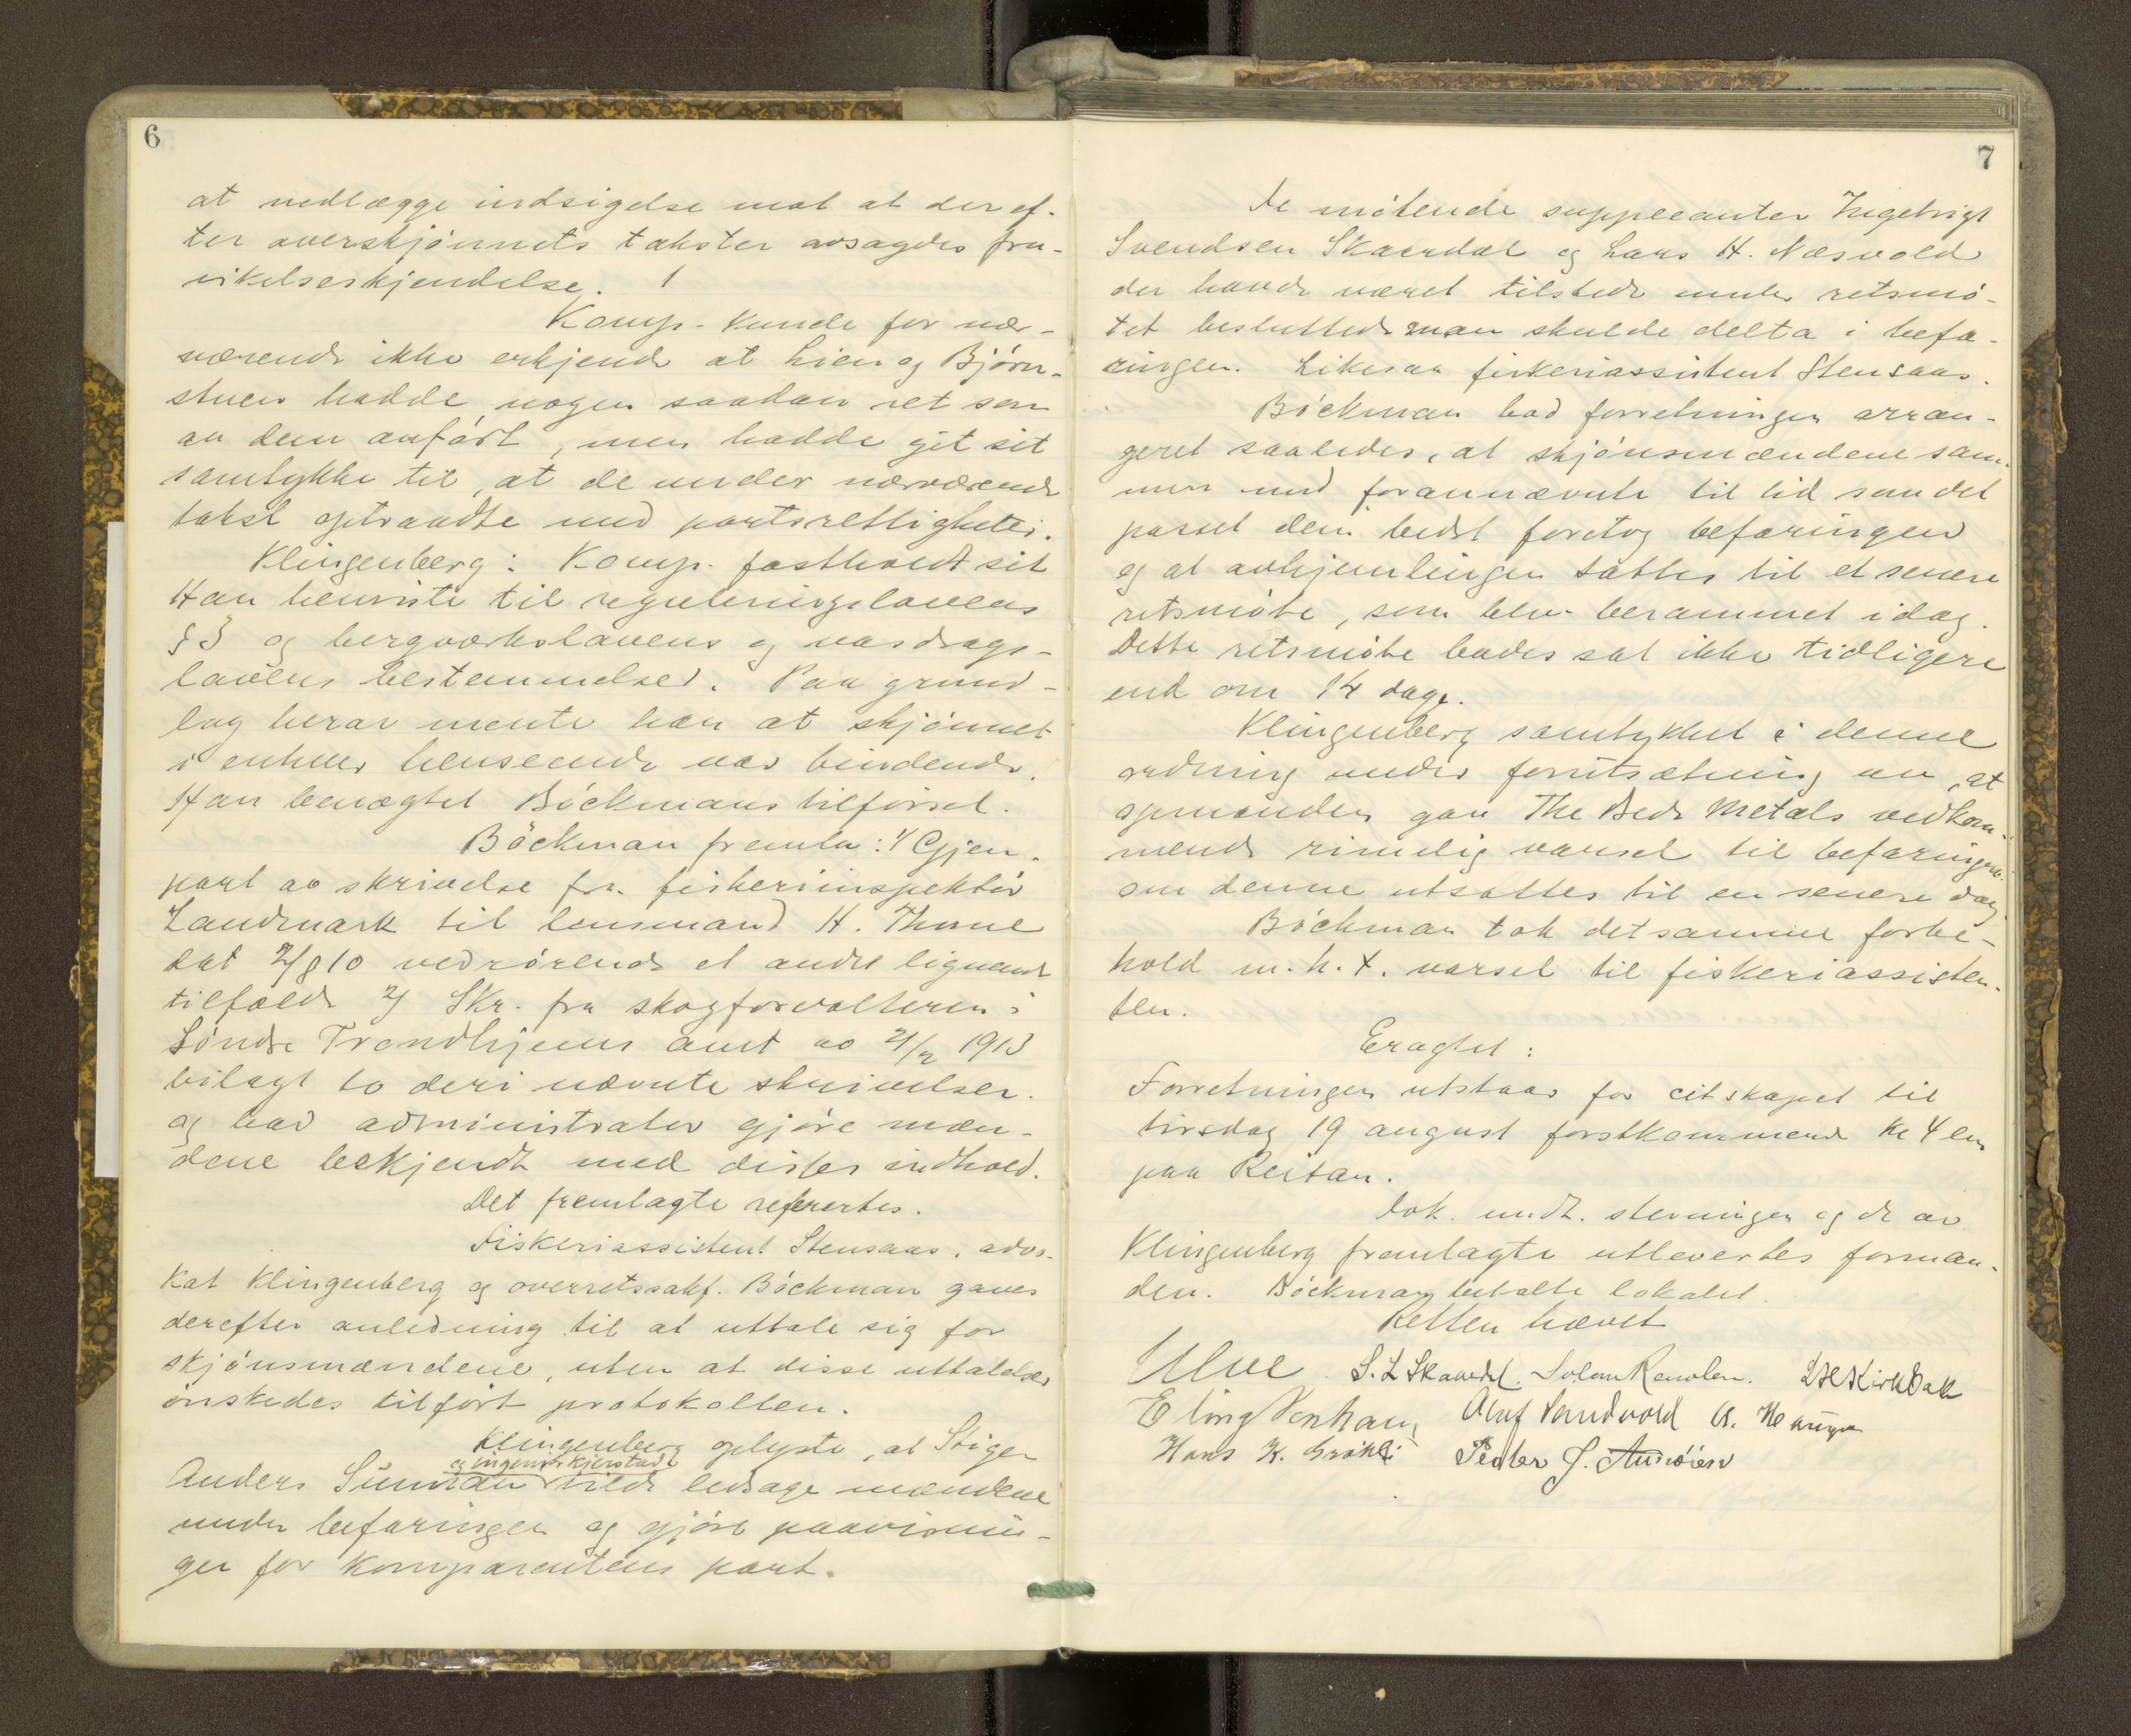 6
at nedlægge indsigelse mot at der ef-
ter overskjønnets takster avsagdes fra-
vikelseskjendelse.
Komp. kunde for nær-
værende ikke erkjende at Lien og Bjørn-
stuen hadde nogen saadan ret som
av dem anført, men hadde git sit
samtykke til, at de under nærværende
takst optraadte med partsrettigheter.
Klingenberg: Komp. fastholdt sit
Han henviste til reguleringslovens
§ 3 og bergverkslovens og vasdrags-
lovens bestemmelser. Paa grund-
lag herav mente han at skjønnet
i enhver henseende var bindende.
Han benægtet Böckmans tilførsel.
Böckman fremla: 1/ Gjen-
part av skrivelse fra fiskeriinspektør
Landmark til lensmand H. Thome
dat 2/8 10 vedrørende et andet lignende
tilfælde 2/ Skr. fra skogforvalteren i
Søndre Trondhjems amt av 21/2 1913
bilagt to deri nævnte skrivelser.
og bad administrator gjøre mæn-
dene bekjendt med disses indhold.
Det fremlagte referertes.
Fiskeriassistent Stensaas, advo-
kat Klingenberg og overretssakf. Böckman gaves
derefter anledning til at uttale sig for
skjønsmændene, uten at disse uttalelser
ønskedes tilført protokollen.
Klingenberg oplyste, at Stiger
og ingeniør Kjerstad
Anders Sunndan vilde ledsage mændene
under befaringen og gjøre paavisnin-
ger for komparentens part.
7
De møtende supplecanter Ingebrigt
Svendsen Skaardal og Lars H. Næsvold
der havde været tilstede under retsmø-
tet besluttede man skulde delta i befa-
ringen. Likesaa fiskeriassistent Stensaas.
Böckman bad forretningen arran-
geret saaledes, at skjønsmændene sam-
men med forannævnte til tid som det
passet dem bedst foretog befaringen
og at avhjemlingen sættes til et senere
retsmøte, som blev berammet idag.
Dette retsmøte bades sat ikke tidligere
end om 14 dage.
Klingenberg samtykket i denne
ordning under forutsætning av, at
opmanden gav The Bede Metals vedkom-
mende rimelig varsel til befaringen
om denne utsattes til en senere dag.
Böckman tok det samme forbe-
hold m. h. t. varsel til fiskeriassisten-
ten.
Eragtet:
Forretningen utstaar for eitskapet til
tirsdag 19 august førstkommende kl 4 em
paa Reitan.
Dok. undt. stevningen og de av
Klingenberg fremlagte utlevertes forman-
den. Böckman betalte lokalet.
Retten hævet
S. L Skaardal.
Olaf Sandvold
Hans K. Grøtli Peder J.